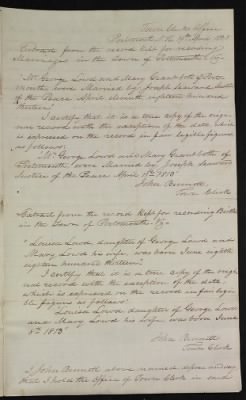 Town Clerk's Office
Portsmouth N.H.
Extract from the record kept for recording
Marriages in the Town of Portsmouth Viz.
"Mr. George Lowd and Mary Grant both of Ports-
mouth were Married by Joseph Seaward Justice
of the Peace April eleventh eighteen hundred
thirteen"
I certify that it is a true copy of the origi-
nal record with the exception of the date which
is expressed on the record in fair legible figures
as follows:
Mr. George Lowd and Mary Grant both of
Portsmouth were Married by Joseph Seaward
Justice of the Peace April 11th 1813"
John Bennett
Town Clerk
Extract from the record kept for recording Births
in the Town of Portsmouth Viz
"Louisa Lowd daughter of George Lowd and
Mary Lowd his wife was born June eighth
eighteen hundred thirteen"
I certify that it is a true copy of the origi-
nal record with the exception of the date
which is expressed on the record in fair legi-
ble figures as follows:
Louisa Lowd daughter of George Lowd
and Mary Lowd his wife was born June
8th 1813"
John Bennett
Town Clerk
I John Bennett above named depose and say
that I hold the Office of Town Clerk in said